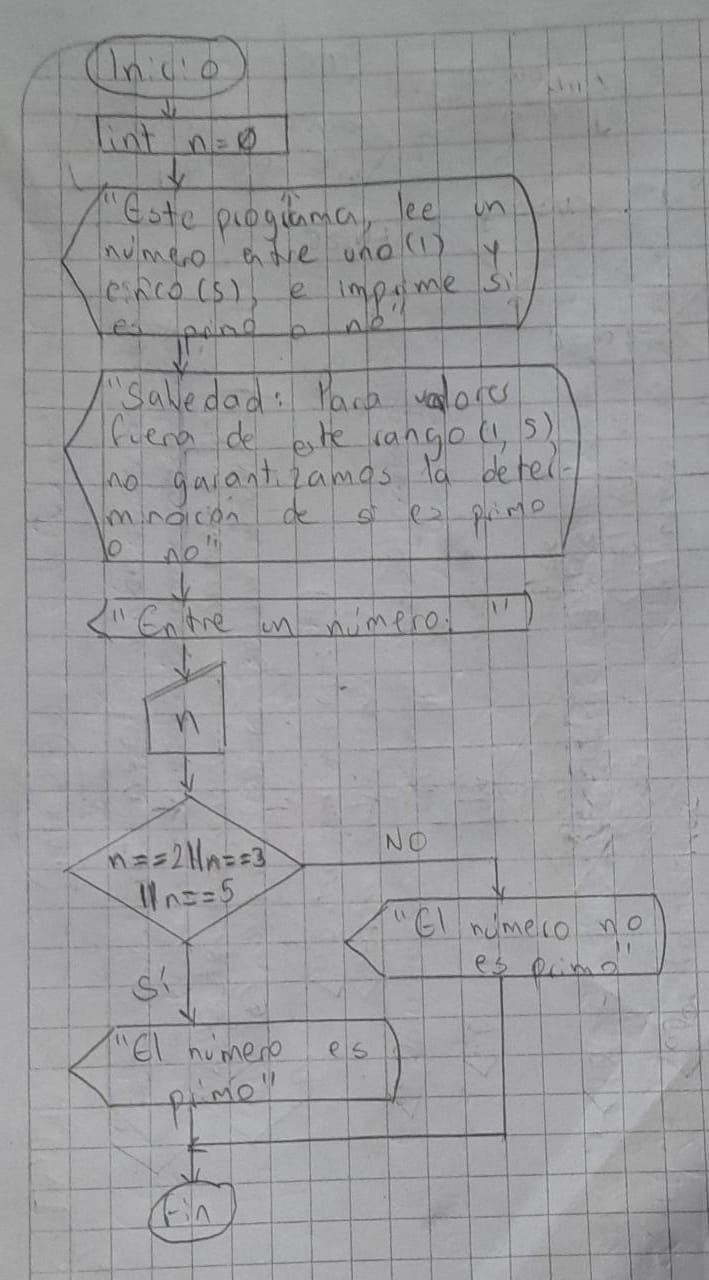 Inicio
int n=0
"Este programa, lee un
número entre uno (1) y
cinco (5), e imprime si
es primo o no"
"Salvedad: Para valores
fuera de este rango (1, 5)
no garantizamos la deter-
minación de si es primo
o no"
"Entre un número: "
n
n==2||n==3
||n==5
NO
"El número no
es primo"
Sí
"El número es
primo"
Fin